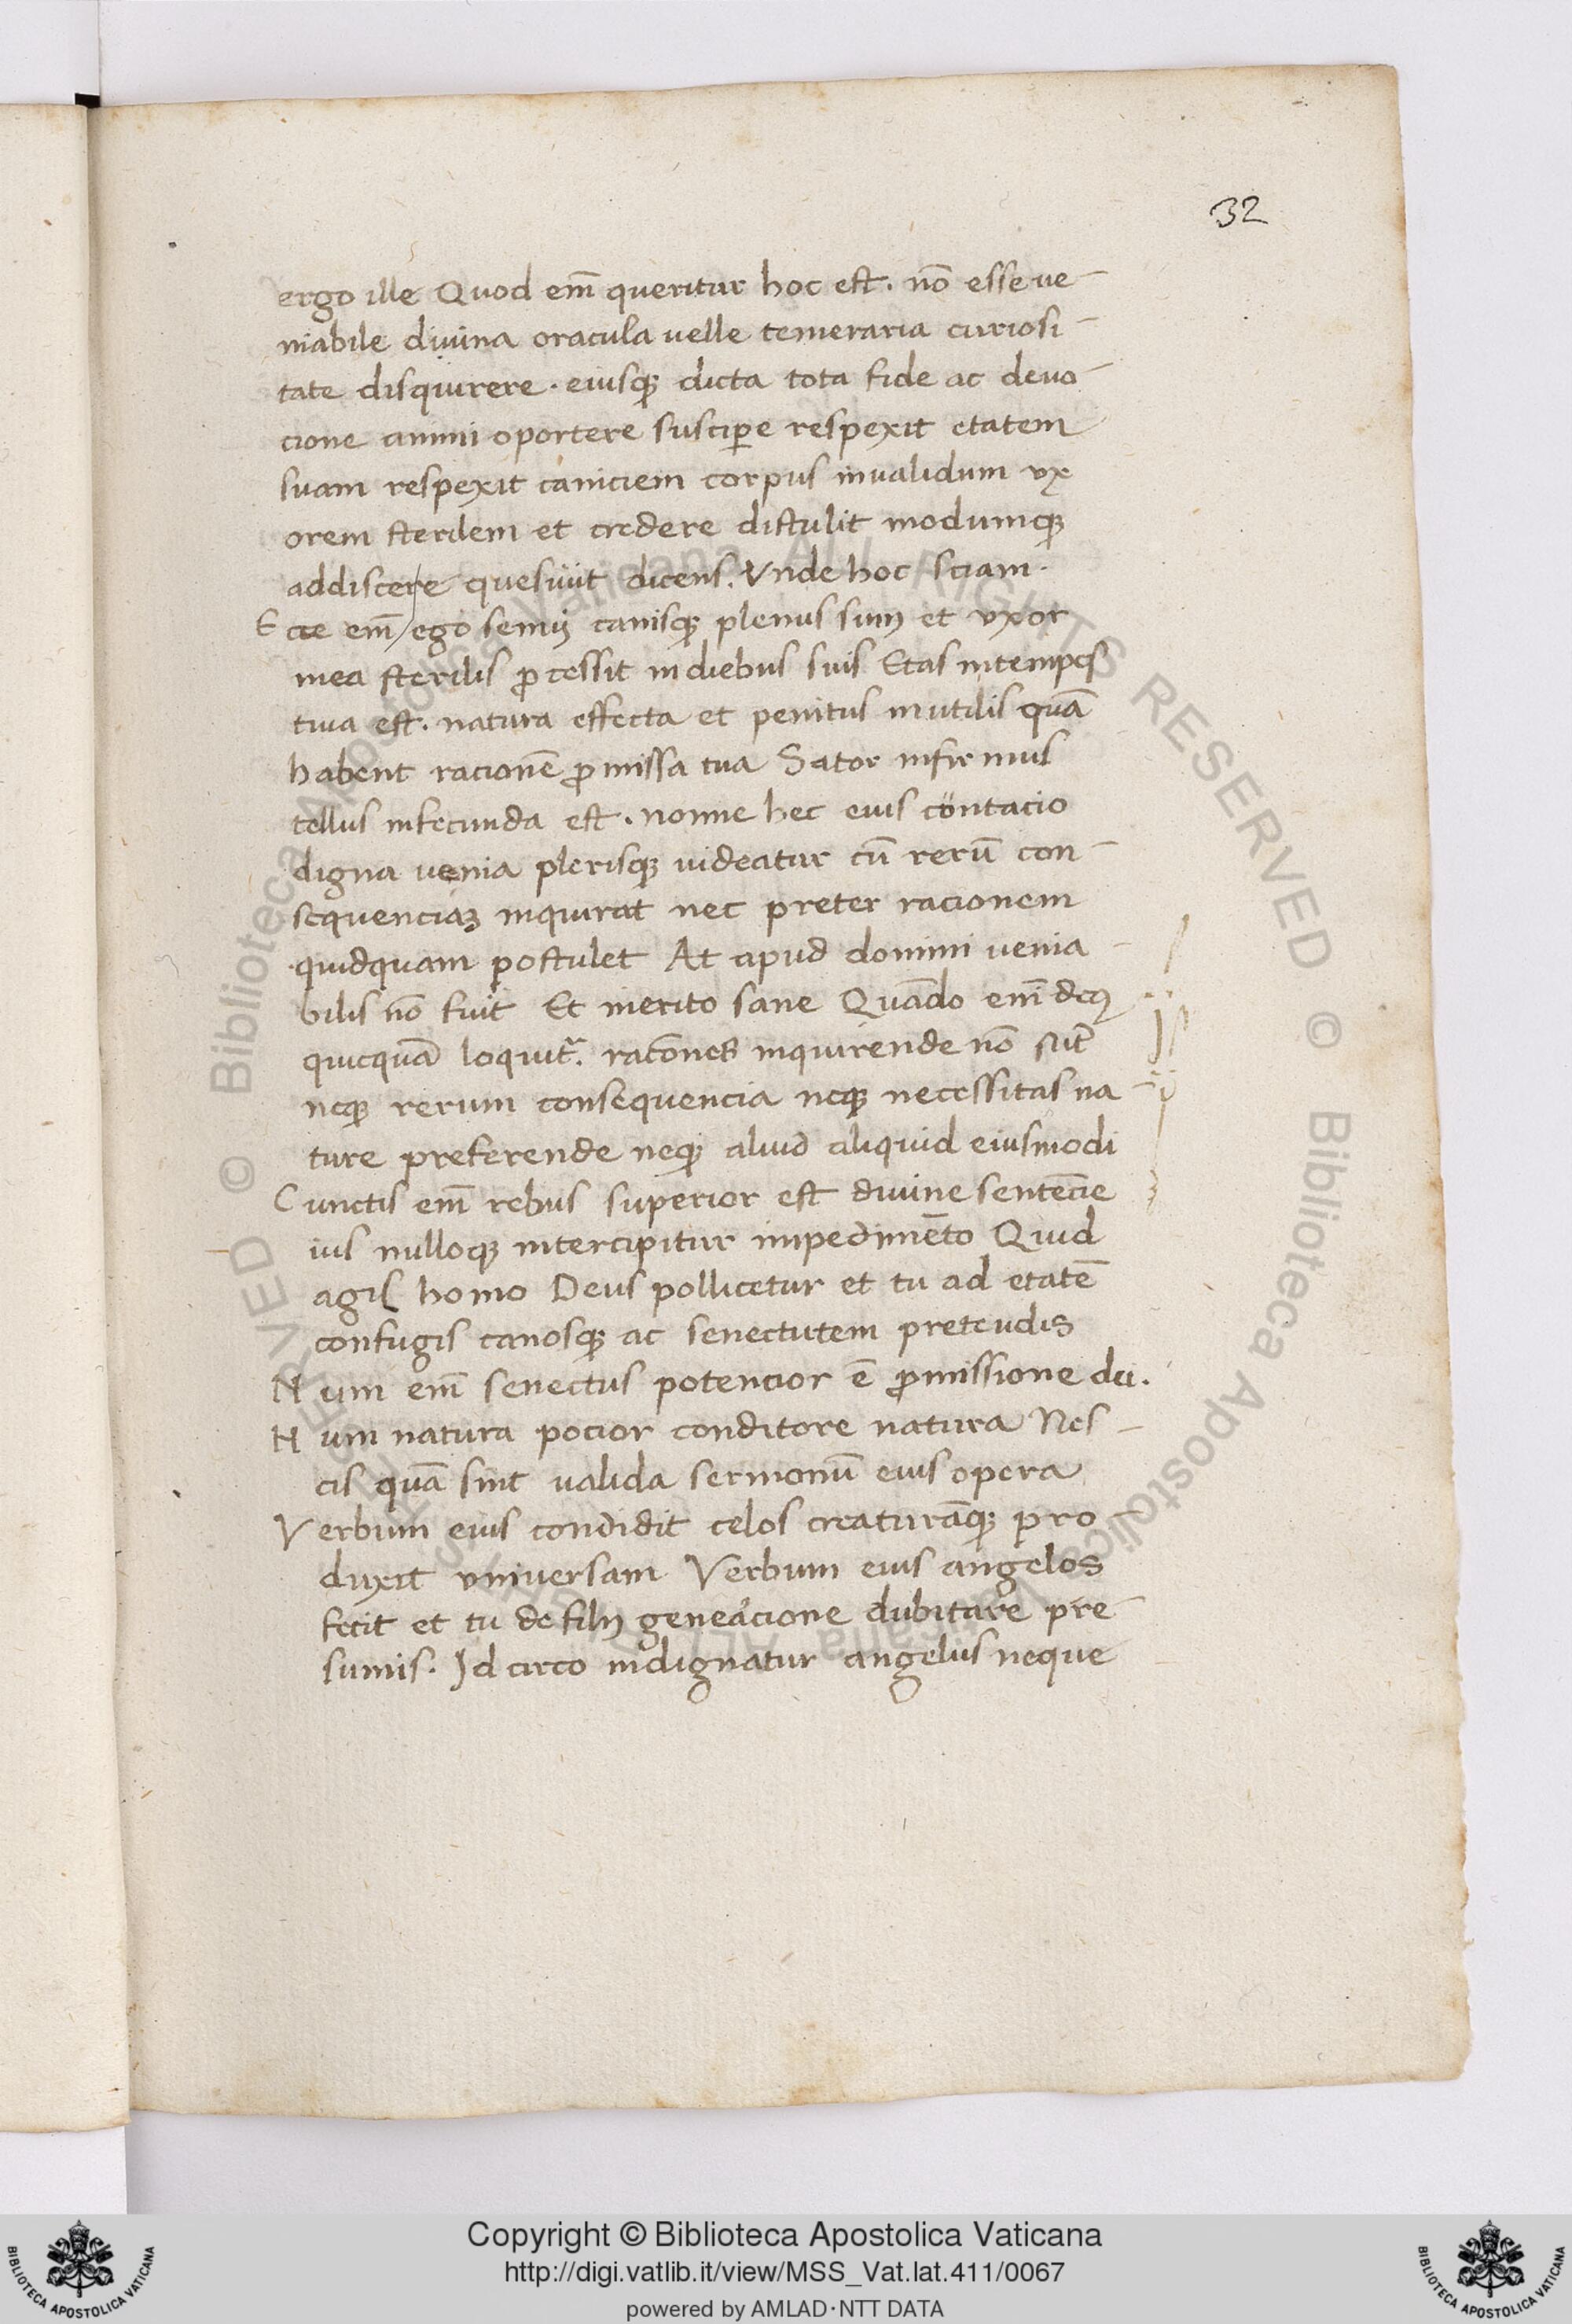 32
ergo ille Quod em̄ queritur hoc est. nō esse ve-
niabile diuina oracula uelle temeraria curiosi-
tate disquirere. eiusqꝫ dicta tota fide ac deuo-
cione animi oportere suscipe respexit etatem
suam respexit caniciem corpus inualidum vx
orem sterilem et credere distulit modumqꝫ
addiscere quesiuit dicens. Vnde hoc sciam.
Ecce em̄ ego senui canisqꝫ plenus sum et vxor
mea sterilis ꝓcessit in diebus suis Etas intempes
tiua est. natura effecta et penitus inutilis quā
habent racionē ꝓmissa tua Sator infirmus
tellus infecunda est. nonne hec eius cōntacio
digna venia plerisqꝫ uideatur cū rerū con-
sequenciaꝫ inquirat nec preter racionem
quidquam postulet At apud domini uenia-
bilis nō fuit Et merito sane Quādo em̄ deꝰ
quicquā loquit᷑. racōnes inquirende nō sūt
neqꝫ rerum consequencia neqꝫ necessitas na-
ture preferende neqꝫ aliud aliquid eiusmodi
Cunctis em̄ rebus superior est diuine sentēcie
ius nulloqꝫ intercipitur impedimēto Quid
agis homo Deus pollicetur et tu ad etatē
confugis canosqꝫ ac senectutem pretendis
Num em̄ senectus potencior ē ꝓmissione dei.
Num natura pocior conditore natura Nes-
cis quā sint ualida sermonū eius opera
Verbum eius condidit celos creaturāqꝫ pro-
duxit vniuersam Verbum eius angelos
fecit et tu de filij geneacione dubitare pre-
sumis. Idcirco indignatur angelus neque
Copyright © Biblioteca Apostolica Vaticana
http://digi.vatlib.it/view/MSS_Vat.lat.411/0067
powered by AMLAD·NTT DATA
BIBLIOTECA APOSTOLICA VATICANA
BIBLIOTECA APOSTOLICA VATICANA